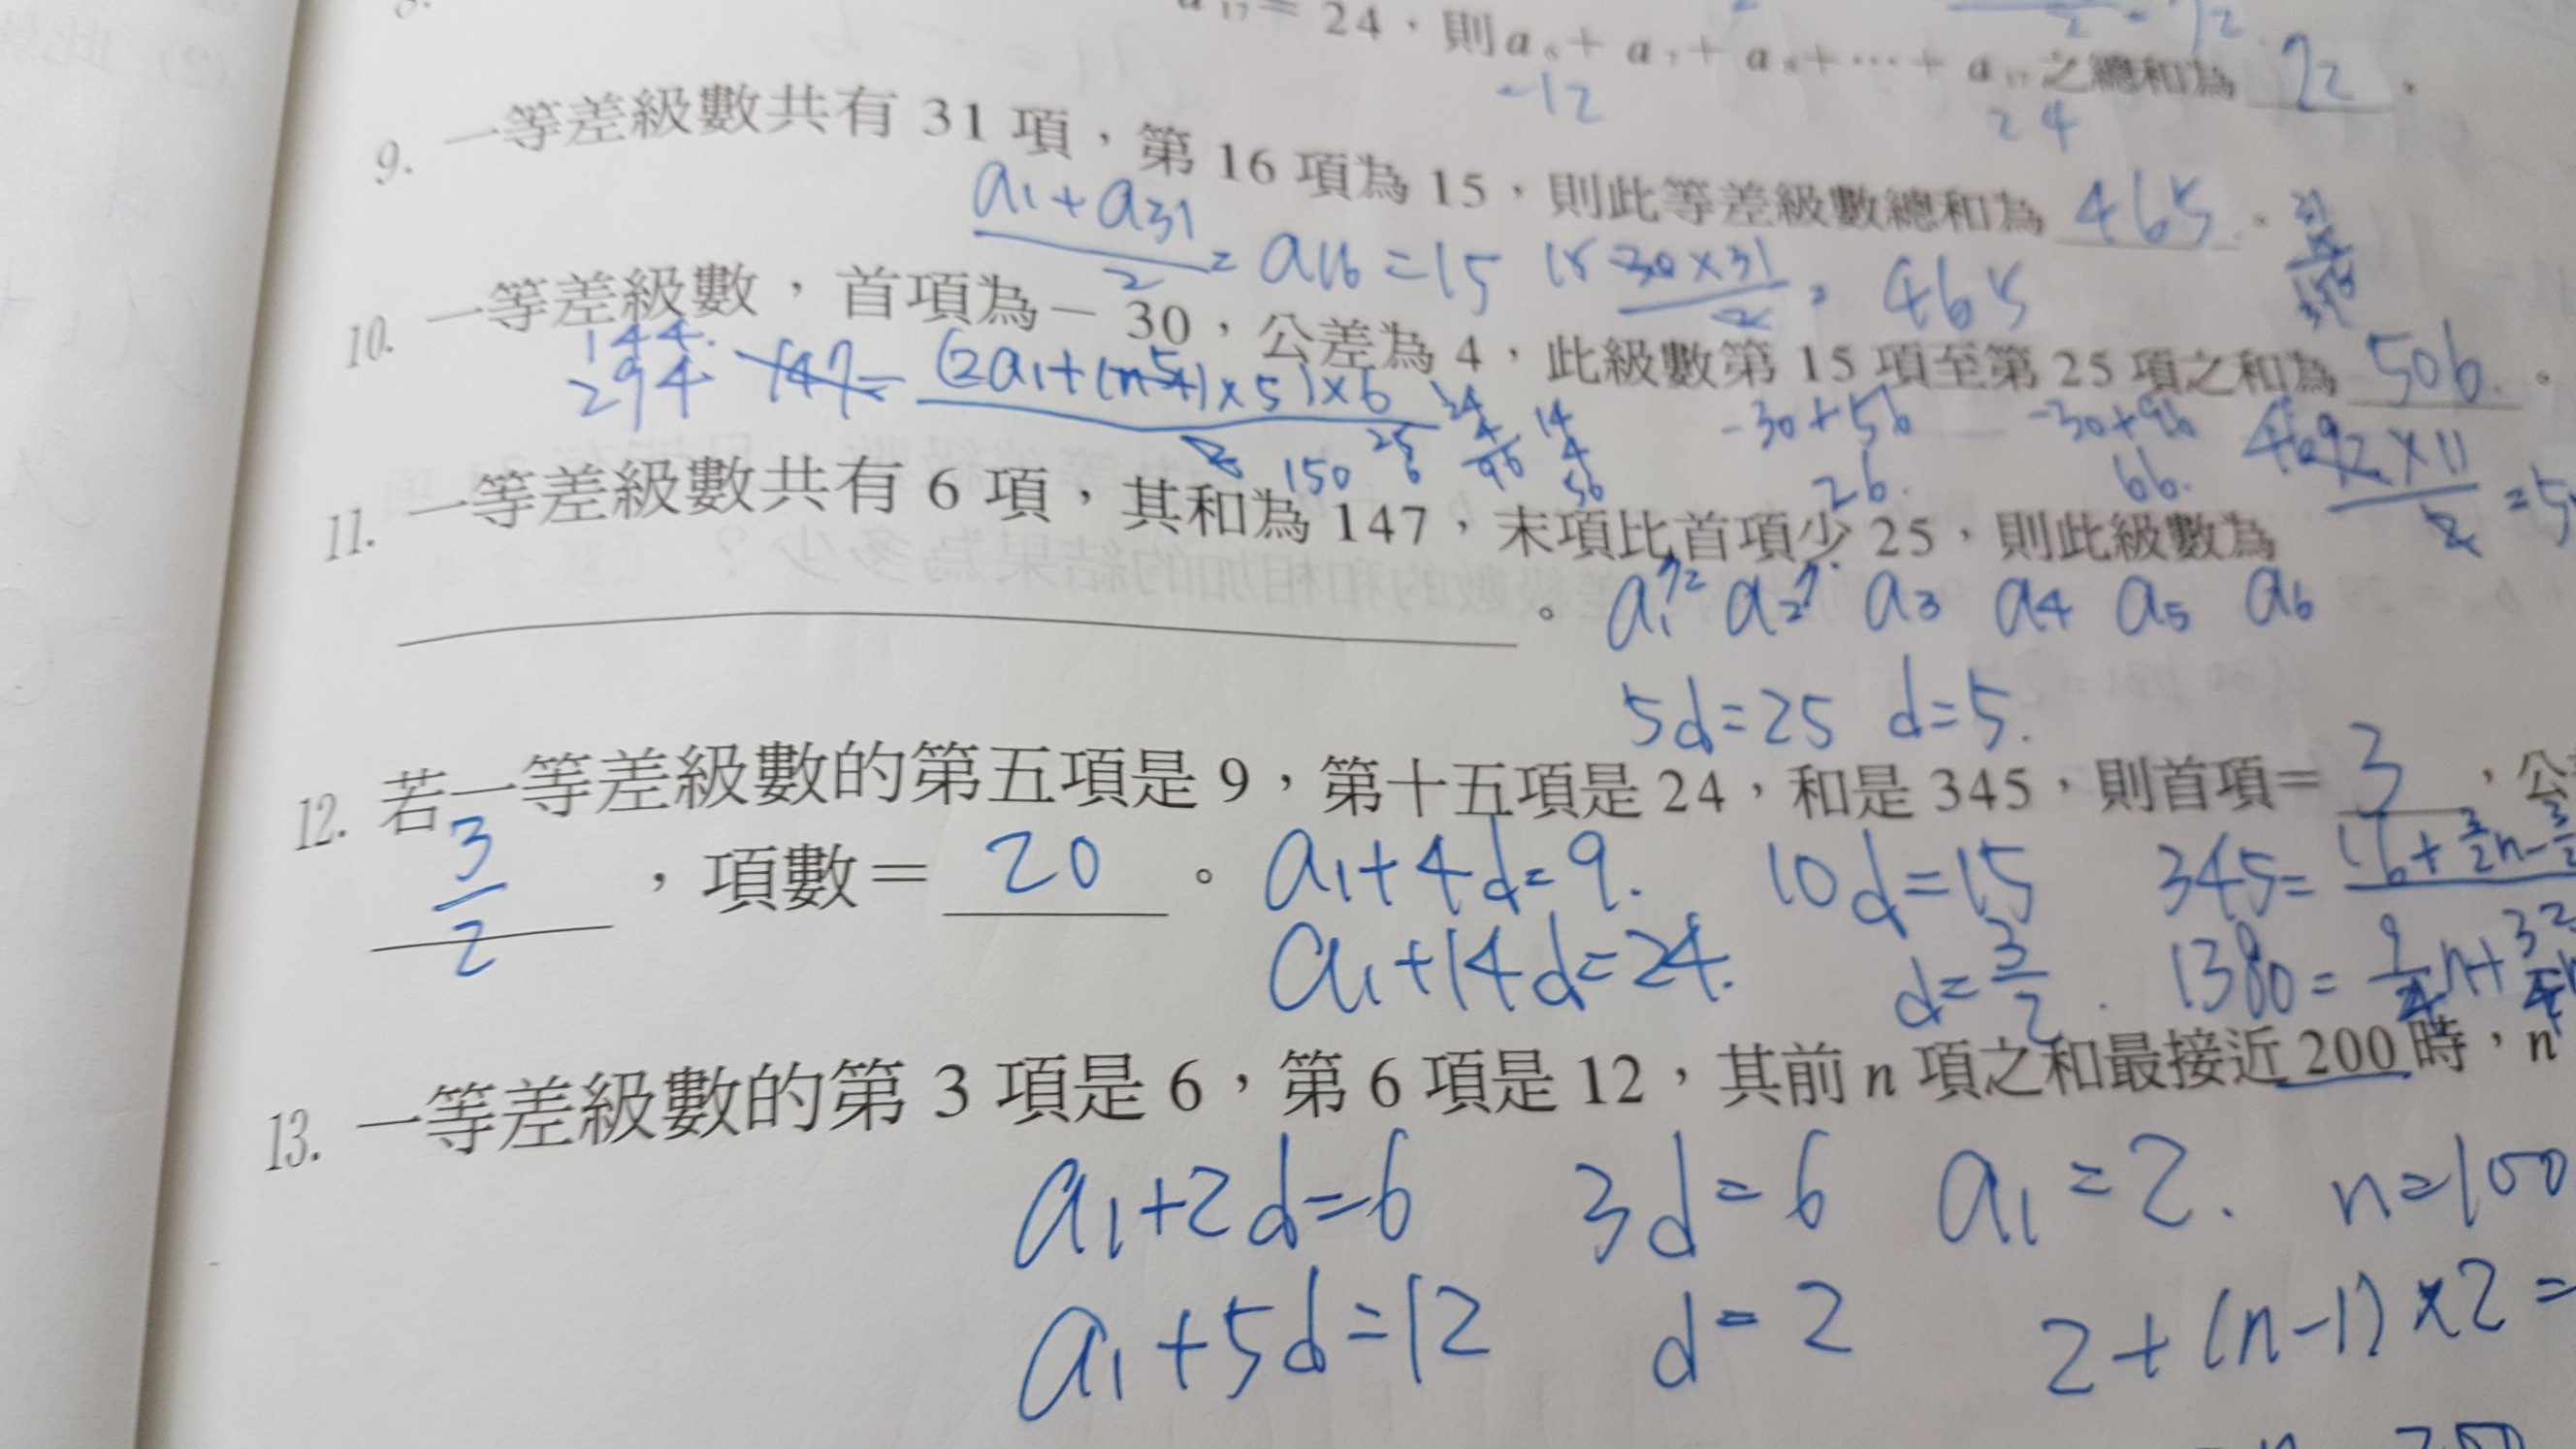 17 = 24，則 a₆ + a₇ + a₈ + ⋯ + a₁₇ 之總和為 72 。
-12 24
9. 一等差級數共有 31 項，第 16 項為 15，則此等差級數總和為 465 。
(a₁+a₃₁)/2 = a₁₆ = 15 30×31/2 = 465
10. 一等差級數，首項為 − 30，公差為 4，此級數第 15 項至第 25 項之和為 506. 。
144.
294 147= -30+56 -30+96
150 26. 66.
11. 一等差級數共有 6 項，其和為 147，末項比首項少 25，則此級數為
。 a₁ a₂ a₃ a₄ a₅ a₆
5d=25 d=5.
12. 若一等差級數的第五項是 9，第十五項是 24，和是 345，則首項= 3 ，公
3/2 ，項數= 20 。 a₁+4d=9. 10d=15 345=
a₁+14d=24. d=3/2. 1380=
13. 一等差級數的第 3 項是 6，第 6 項是 12，其前 n 項之和最接近 200 時，n
a₁+2d=6 3d=6 a₁=2. n=100
a₁+5d=12 d=2 2+(n-1)×2=